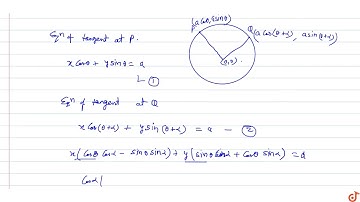 Eqⁿ of tangent at P.
P(a cosθ, a sinθ)
Q(a cos(θ+α), a sin(θ+α))
(0,0)
x cosθ + y sinθ = a
①
Eqⁿ of tangent at Q
x cos(θ+α) + y sin(θ+α) = a — ②
x(cosθ cosα − sinθ sinα) + y(sinθ cosα + cosθ sinα) = a
cosα(